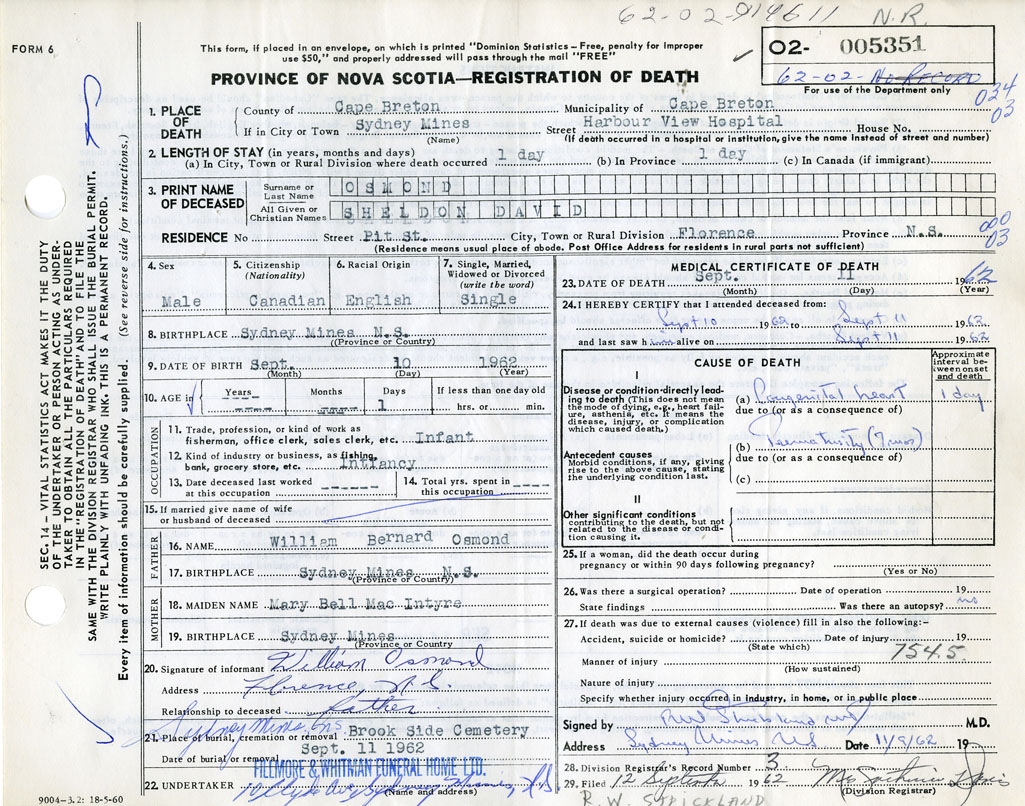 62-02-914611 N.R.
FORM 6
This form, if placed in an envelope, on which is printed "Dominion Statistics–Free, penalty for improper
use $50," and properly addressed will pass through the mail "FREE"
02- 005351
62-02-No Record
For use of the Department only
034
03
PROVINCE OF NOVA SCOTIA—REGISTRATION OF DEATH
1. PLACE OF DEATH
County of Cape Breton Municipality of Cape Breton
If in City or Town Sydney Mines Street Harbour View Hospital House No.
(Name) (If death occurred in a hospital or institution, give the name instead of street and number)
2. LENGTH OF STAY (in years, months and days)
(a) In City, Town or Rural Division where death occurred 1 day (b) In Province 1 day (c) In Canada (if immigrant)
3. PRINT NAME OF DECEASED
Surname or Last Name OSMOND
All Given or Christian Names SHELDON DAVID
RESIDENCE No Street Pit St. City, Town or Rural Division Florence Province N.S.
(Residence means usual place of abode. Post Office Address for residents in rural parts not sufficient)
000
03
4. Sex
Male
5. Citizenship
(Nationality)
Canadian
6. Racial Origin
English
7. Single, Married,
Widowed or Divorced
(write the word)
Single
8. BIRTHPLACE Sydney Mines N.S.
(Province or Country)
9. DATE OF BIRTH Sept. 10 1962
(Month) (Day) (Year)
10. AGE in Years Months Days If less than one day old
---- ---- 1 hrs. or min.
OCCUPATION
11. Trade, profession, or kind of work as
fisherman, office clerk, sales clerk, etc. Infant
12. Kind of industry or business, as fishing,
bank, grocery store, etc. Infancy
13. Date deceased last worked
at this occupation ------
14. Total yrs. spent in
this occupation ----
15. If married give name of wife
or husband of deceased
FATHER
16. NAME William Bernard Osmond
17. BIRTHPLACE Sydney Mines N.S.
(Province or Country)
MOTHER
18. MAIDEN NAME Mary Bell Mac Intyre
19. BIRTHPLACE Sydney Mines
(Province or Country)
20. Signature of informant William Osmond
Address Florence, N.S.
Relationship to deceased father
Sydney Mines, NS
21. Place of burial, cremation or removal Brook Side Cemetery
Date of burial or removal Sept. 11 1962
FILLMORE & WHITMAN FUNERAL HOME LTD.
22. UNDERTAKER
(Name and address)
9004-3.2: 18-5-60
MEDICAL CERTIFICATE OF DEATH
23. DATE OF DEATH Sept. 11 1962
(Month) (Day) (Year)
24. I HEREBY CERTIFY that I attended deceased from:
Sept 10 1962 to Sept 11 1962
and last saw him alive on Sept 11 1962
CAUSE OF DEATH
Approximate interval between onset and death
I
Disease or condition directly leading to death (This does not mean
the mode of dying, e.g., heart failure, asthenia, etc. It means the
disease, injury, or complication
which caused death.)
(a) Congenital heart 1 day
due to (or as a consequence of)
Antecedent causes
Morbid conditions, if any, giving
rise to the above cause, stating
the underlying condition last.
(b) Prematurity (7 mos)
due to (or as a consequence of)
(c)
II
Other significant conditions
contributing to the death, but not
related to the disease or condition causing it.
25. If a woman, did the death occur during
pregnancy or within 90 days following pregnancy?
(Yes or No)
26. Was there a surgical operation? Date of operation 19
State findings Was there an autopsy? no
27. If death was due to external causes (violence) fill in also the following:-
Accident, suicide or homicide? Date of injury 19
(State which)
754.5
Manner of injury
(How sustained)
Nature of injury
Specify whether injury occurred in industry, in home, or in public place
Signed by RW Strickland M.D.
Address Sydney Mines NS Date 11/9/62 19
28. Division Registrar's Record Number 3
29. Filed 12 September 1962
(Division Registrar)
R.W. STRICKLAND
SEC. 14 – VITAL STATISTICS ACT MAKES IT THE DUTY
OF THE UNDERTAKER OR PERSON ACTING AS UNDER-
TAKER TO OBTAIN ALL THE PARTICULARS REQUIRED
IN THE "REGISTRATION OF DEATH" AND TO FILE THE
SAME WITH THE DIVISION REGISTRAR WHO SHALL ISSUE THE BURIAL PERMIT.
WRITE PLAINLY WITH UNFADING INK. THIS IS A PERMANENT RECORD.
Every item of information should be carefully supplied. (See reverse side for instructions.)